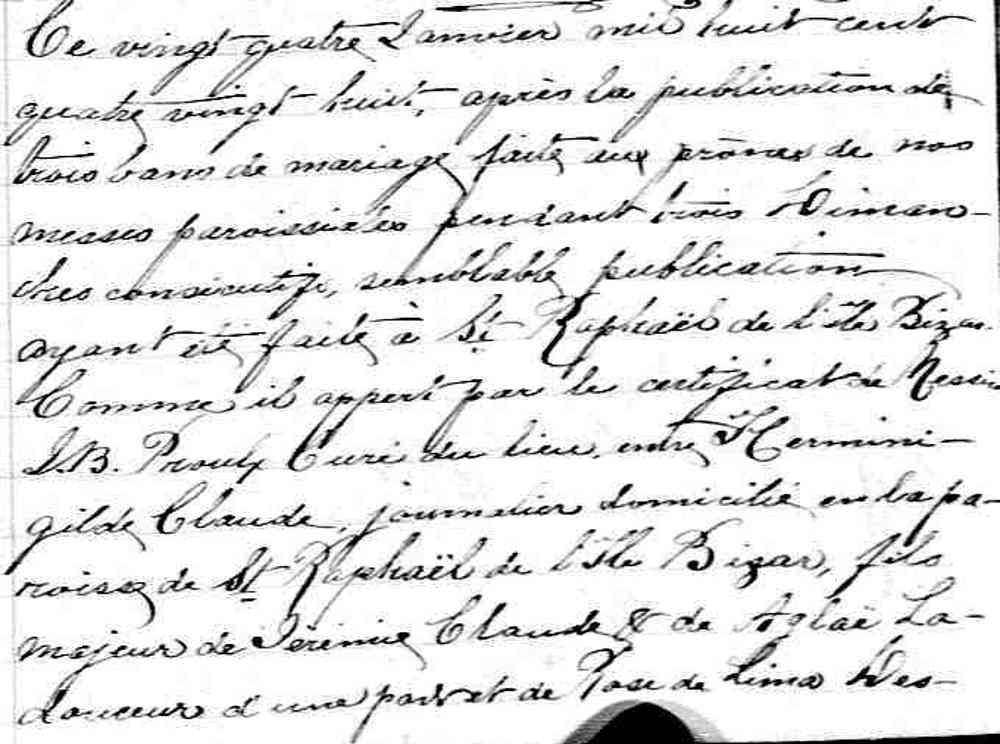 Ce vingt quatre Janvier mil huit cent
quatre vingt huit, après la publication de
trois bans de mariage faite aux prônes de nos
messes paroissiales pendant trois Diman-
ches consécutifs, semblable publication
ayant été faite à St Raphaël de l'Isle Bizar.
Comme il appert par le certificat de Messire
J.B. Proulx Curé du lieu, entre Herméni-
gilde Claude, journalier domicilié en la pa-
roisse de St Raphaël de l'Isle Bizar, fils
majeur de Jérémie Claude & de Aglaë La-
douceur d'une part et de Rose de Lima Des-